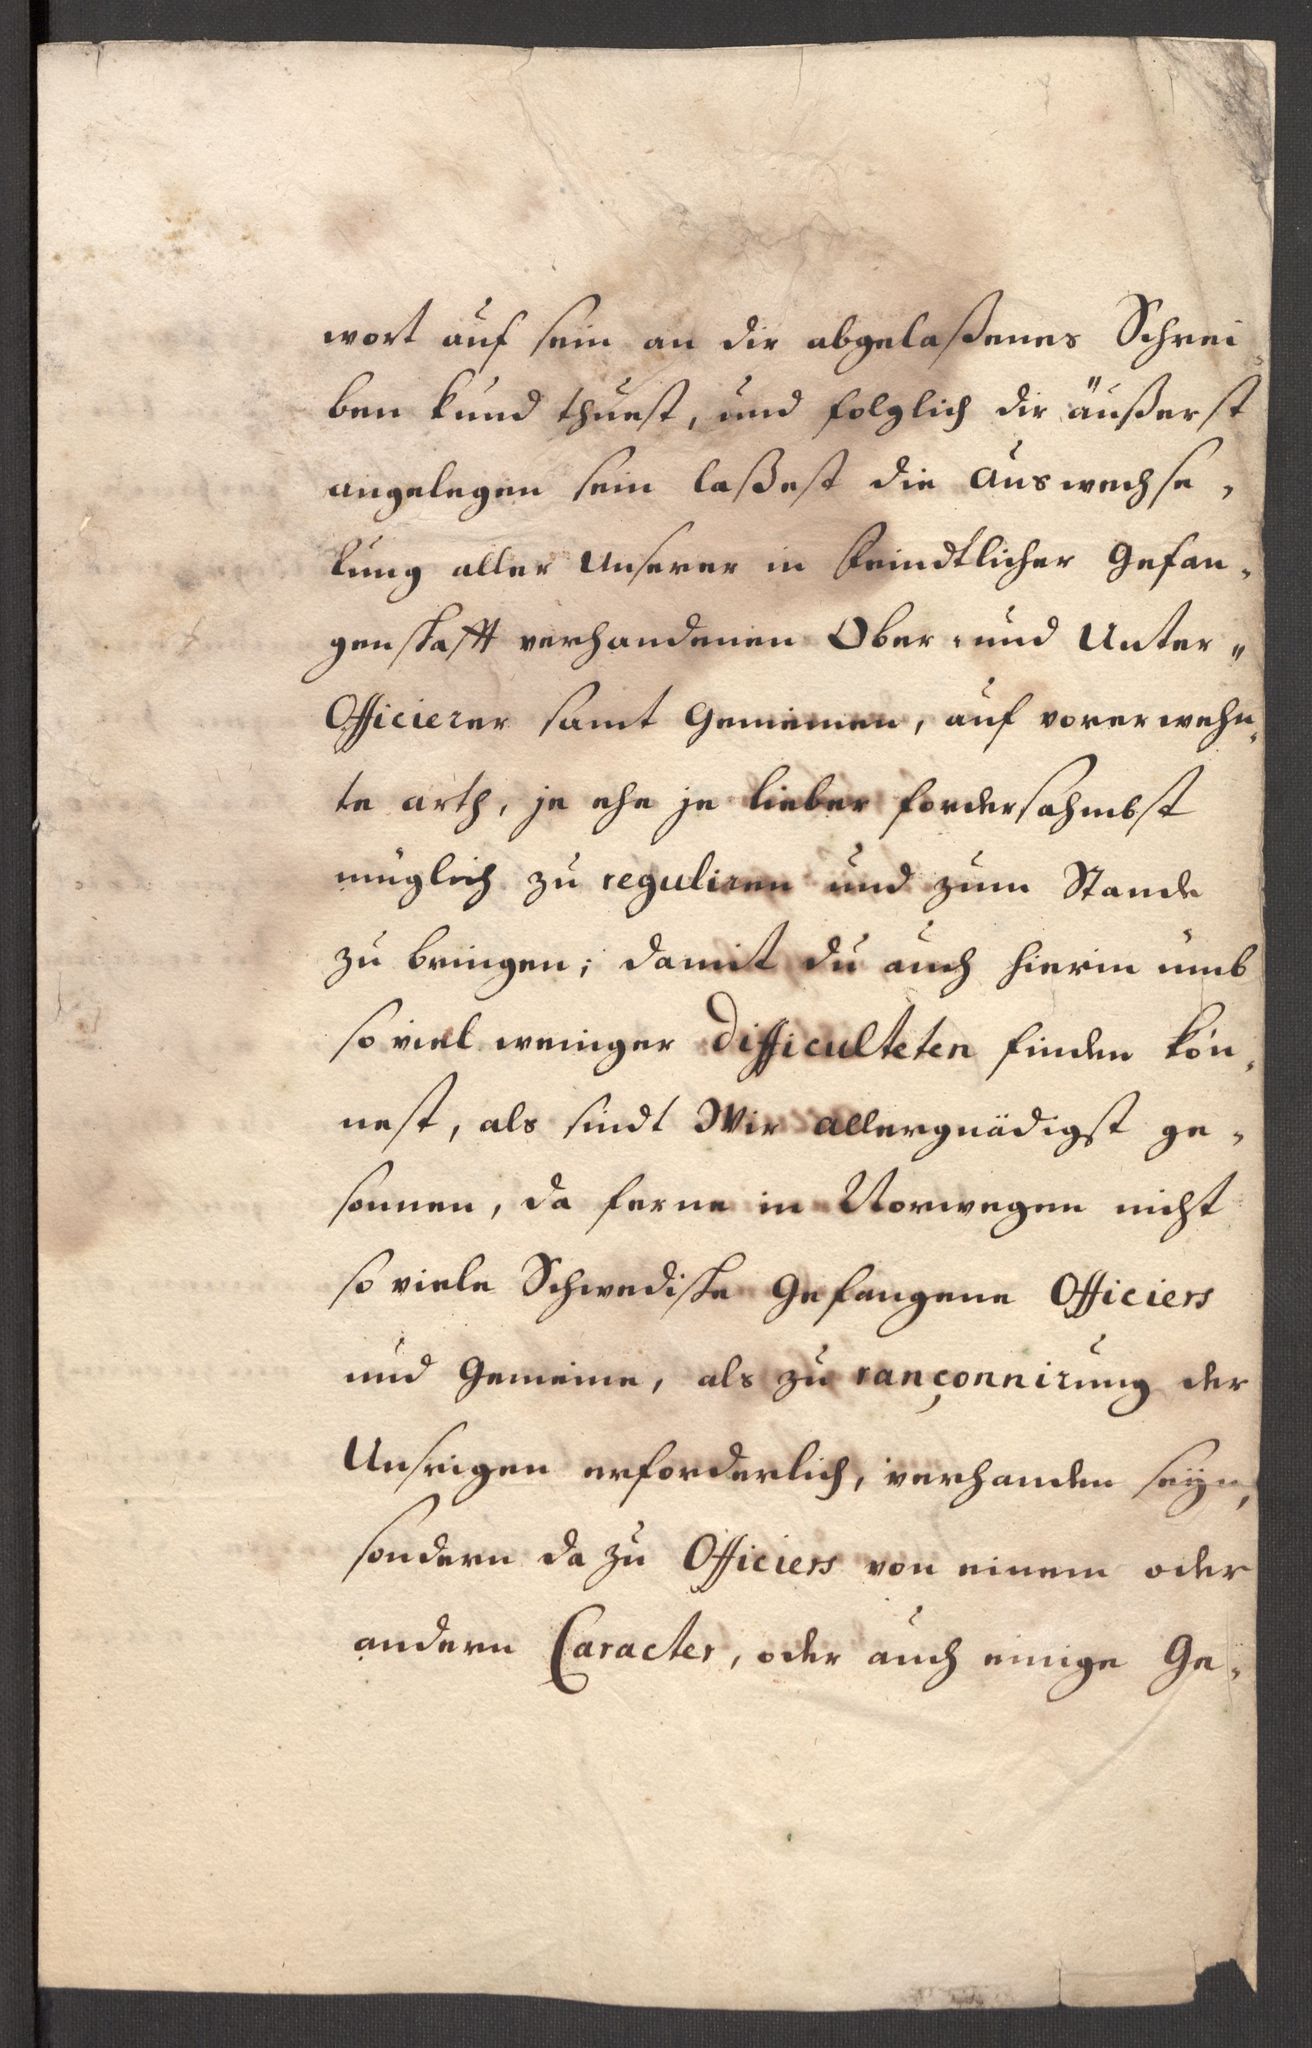 wort auf sein an dir abgelaßenes Schrei
ben kund thuest, und folglich dir äußerst
angelegen sein laßest die Auswechse,
lung aller Unserer in feindtlicher Gefan,
genskafft verhandenen Ober, und Unter„
Officierer samt Gemeinen, auf vorerwehn,
te arth, je ehe je lieber fordersahmbst
müglich zu reguliren und zum Stande
zu bringen; damit du auch hierin umb
so viel weniger Difficulteten finden kön,
nest, als sindt Wir allergnädigst ge,
sonnen, da ferne in Norwegen nicht
so viele Schwediske Gefangene Officiers
und Gemeine, als zu rançonnirung der
Unsrigen erforderlich, verhanden seÿn,
sondern da zu Officiers von einem oder
andern Caracter, oder auch einige Ge,